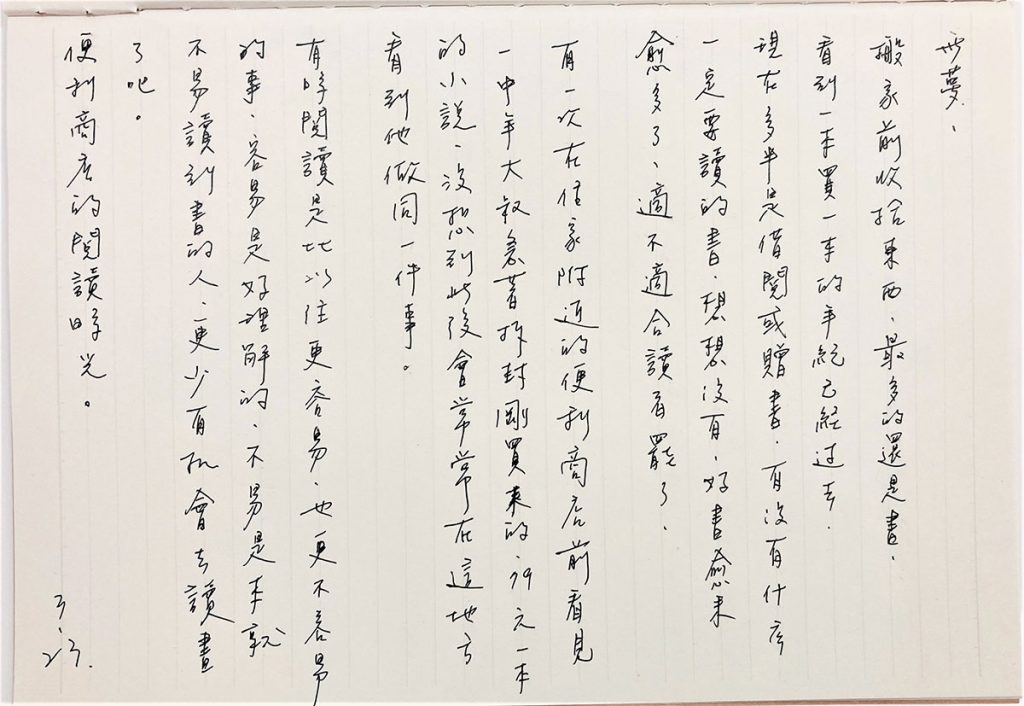 無夢、
搬家前收拾東西、最多的還是書、
看到一本買一本的年紀已經过去、
現在多半是借閱或贈書、有沒有什么
一定要讀的書、想想沒有、好書愈來
愈多了、適不適合讀者罷了、
有一次在住家附近的便利商店前看見
一中年大叔急著拆封剛買來的、79元一本
的小說、沒想到此後會常常在這地方
看到他做同一件事。
有時閱讀是比以往更容易、也更不容易
的事、容易是好理解的、不易是本就
不易讀到書的人、更少有机會去讀書
了吧。
便利商店的閱讀時光。
3.23.